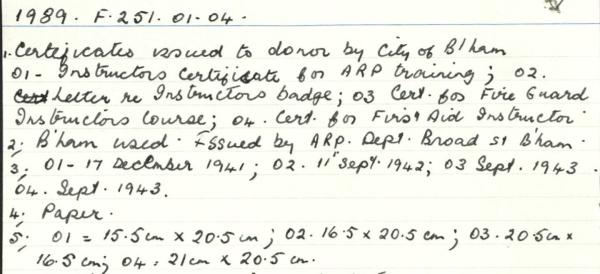 1989. F. 251. 01-04.
1. Certificates issued to donor by City of B'ham
01 - Instructors Certificate for ARP training; 02.
Letter re Instructors badge; 03 Cert. for Fire Guard
Instructors Course; 04. Cert. for First Aid Instructor.
2. B'ham used. Issued by ARP. Dept. Broad St B'ham.
3. 01 - 17 December 1941; 02. 11 Sept. 1942; 03 Sept. 1943.
04. Sept. 1943.
4. Paper.
5. 01 = 15.5 cm x 20.5 cm; 02. 16.5 x 20.5 cm; 03. 20.5 cm x
16.5 cm; 04 = 21 cm x 20.5 cm.